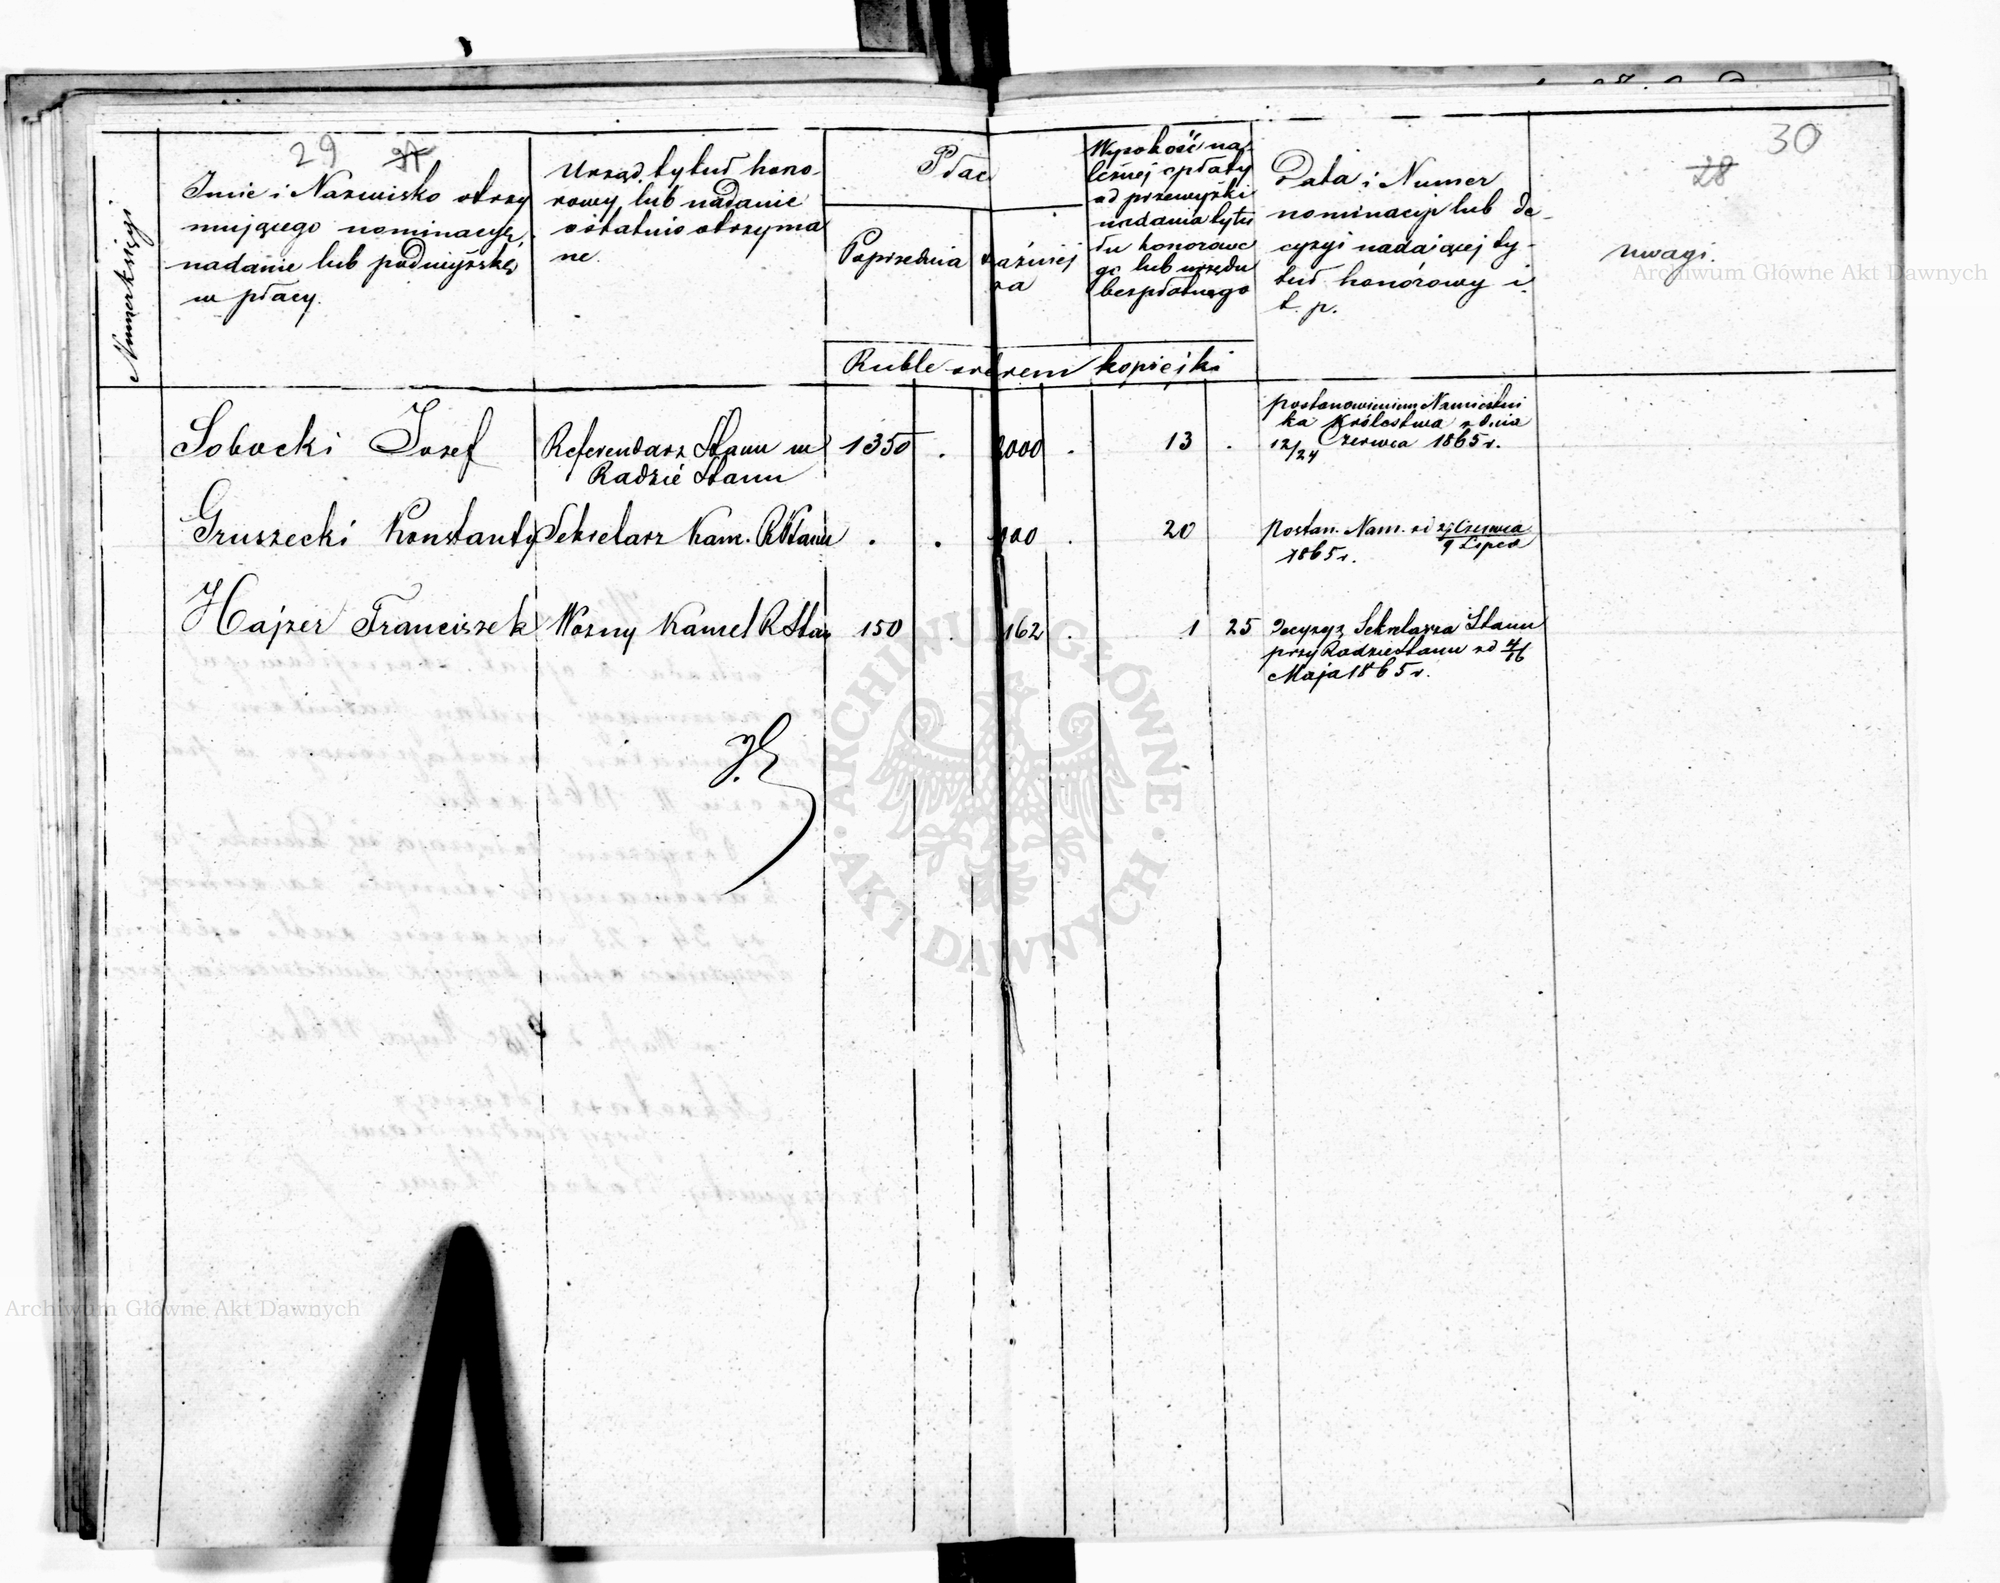 29
30
28
Imie i Nazwisko otrzy
mującego nominacyę,
nadanie lub podwyżkę
w płacy.
Urząd, tytuł hono-
rowy lub nadanie
ostatnio otrzyma
ne.
Płac
Poprzednia
Wysokość na-
leżnej opłaty
od przewyżki
nadania tytu
łu honorowe
go lub urzędu
bezpłatnego
Data i Numer
nominacyi lub de-
cyzyi nadającej ty-
tuł honorowy i
t. p.
uwagi.
Ruble srebrem kopiejki
Sobocki Josef
Referendarz Stanu w
Radzie Stanu
1350 . 2000 . 13 .
postanowieniem Namiestni
ka Królestwa z dnia
12/24 Czerwca 1865 r.
Gruszecki Konstanty
Sekretarz Kanc. R Stanu
. . 900 . 20
Postan. Nam. z d 27 Czerwca
9 Lipca
1865 r.
Hajzer Franciszek
Woźny Kancel R Stan
150 . 162 . 1 25
Decyzyą Sekretarza Stanu
przy Radzie Stanu z d 4/16
Maja 1865 r.
Archiwum Główne Akt Dawnych
ARCHIWUM GŁÓWNE
· AKT DAWNYCH ·
Archiwum Główne Akt Dawnych